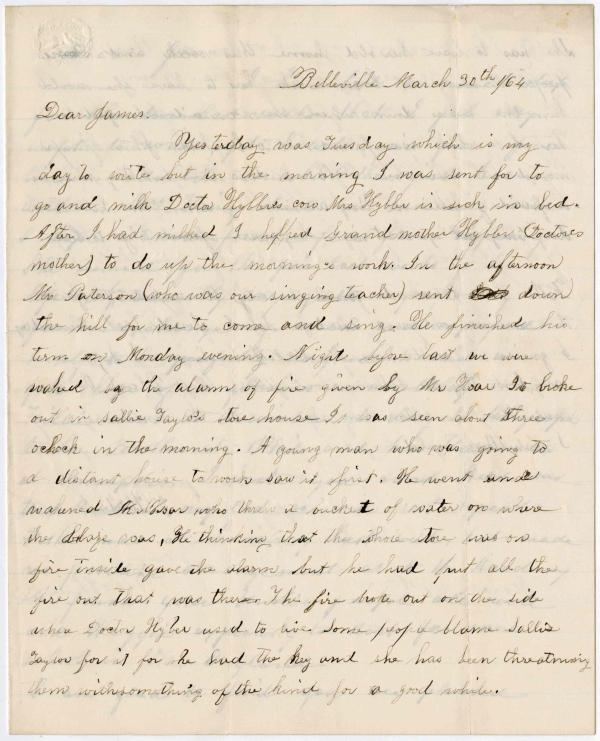 Belleville March 30th /64
Dear James.
Yesterday was Tuesday which is my
day to write but in the morning I was sent for to
go and milk Doctor Hybbers cow Mrs Hybber is sick in bed.
After I had milked I helped Grand mother Hybber (Doctores
mother) to do up the morning's work. In the afternoon
Mr Paterson (who was our singing teacher) sent down
the hill for me to come and sing. He finished his
term on Monday evening. Night before last we were
waked by the alarm of fire given by Mr Hoar It broke
out in Sallie Taylor's store house It was seen about three
oclock in the morning. A young man who was going to
a distant house to work saw it first. He went and
wakened Mr Hoar who threw a bucket of water on where
the blaze was, He thinking that the whole store was on
fire inside gave the alarm but he had put all the
fire out that was there. The fire broke out on the side
where Doctor Hyber used to live some people blame Sallie
Taylor for it for he had the key and she has been threatning
them with something of the kind for a good while.